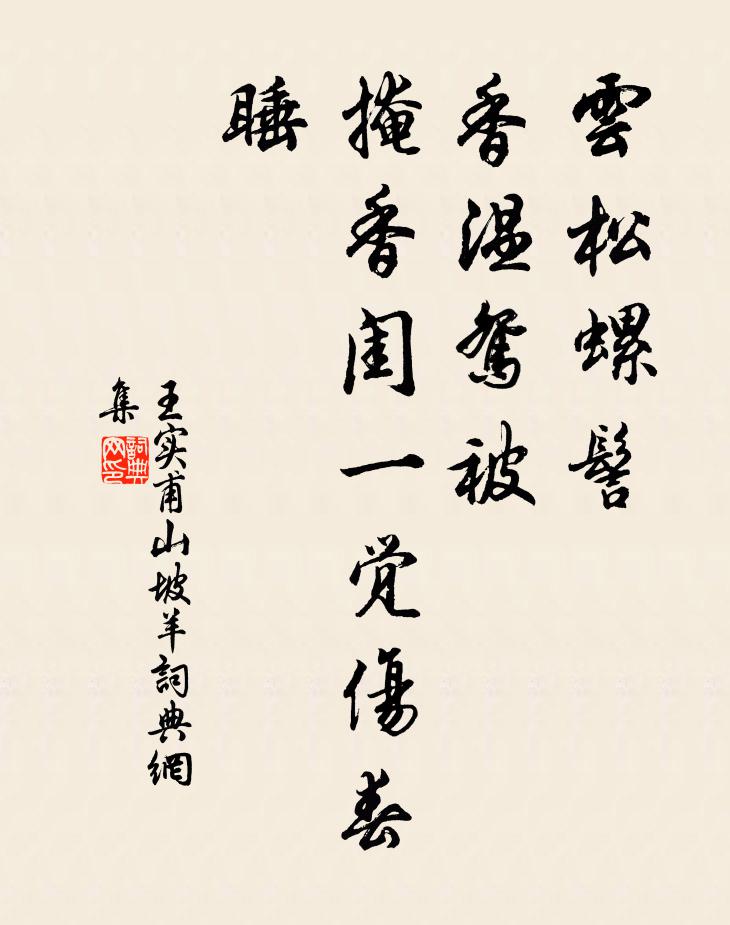 雲松螺髻
香温鴛被
掩香闺一覚傷春
睡
王实甫山坡羊詞典網
集
詞典
网印